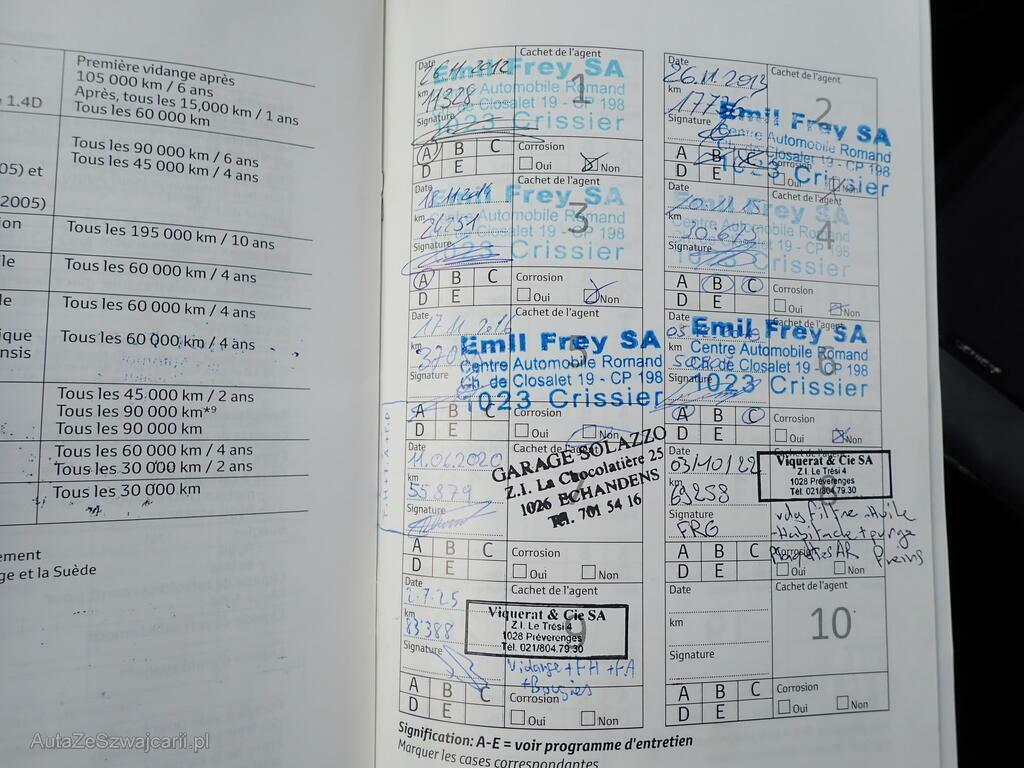 Première vidange après
105 000 km / 6 ans
1.4D
Après, tous les 15,000 km / 1 ans
Tous les 60 000 km
Tous les 90 000 km / 6 ans
05) et
Tous les 45 000 km / 4 ans
2005)
Tous les 195 000 km / 10 ans
Tous les 60 000 km / 4 ans
Tous les 60 000 km / 4 ans
ique
Tous les 60 000 km / 4 ans
ensis
Tous les 45 000 km / 2 ans
Tous les 90 000 km*9
Tous les 90 000 km
Tous les 60 000 km / 4 ans
Tous les 30 000 km / 2 ans
Tous les 30 000 km
ge et la Suède
Date 26.11.2012
Cachet de l'agent
km 11328
Signature
1
Emil Frey SA
Centre Automobile Romand
Ch. de Closalet 19 - CP 198
1023 Crissier
A B C
D E
Corrosion
Oui Non
Date 26.11.2013
Cachet de l'agent
km
Signature
2
Emil Frey SA
Centre Automobile Romand
Ch. de Closalet 19 - CP 198
1023 Crissier
A B C
D E
Corrosion
Oui Non
Date 18.11.2014
Cachet de l'agent
km 24251
Signature
3
Emil Frey SA
Centre Automobile Romand
Ch. de Closalet 19 - CP 198
1023 Crissier
A B C
D E
Corrosion
Oui Non
Date
km
Signature
4
Emil Frey SA
Centre Automobile Romand
Ch. de Closalet 19 - CP 198
1023 Crissier
A B C
D E
Corrosion
Oui Non
Date 17.11.2016
Cachet de l'agent
km
Signature
5
Emil Frey SA
Centre Automobile Romand
Ch. de Closalet 19 - CP 198
1023 Crissier
A B C
D E
Corrosion
Oui Non
Date
km
Signature
6
Emil Frey SA
Centre Automobile Romand
Ch. de Closalet 19 - CP 198
1023 Crissier
A B C
D E
Corrosion
Oui Non
Date 11.06.2020
Cachet de l'agent
km 55879
Signature
GARAGE SOLAZZO
Z.I. La Chocolatière 25
1026 ECHANDENS
Tél. 701 54 16
A B C
D E
Corrosion
Oui Non
Date 03/10/22
km 69258
Signature
FRG
Viquerat & Cie SA
Z.I. Le Trési 4
1028 Préverenges
Tél. 021/804.79.30
A B C
D E
Corrosion
Oui Non
Date 2.7.25
Cachet de l'agent
km 83388
Signature
9
Viquerat & Cie SA
Z.I. Le Trési 4
1028 Préverenges
Tél. 021/804.79.30
Vidange + FH + FA
+ Bougies
A B C
D E
Corrosion
Oui Non
Date
Cachet de l'agent
km
Signature
10
A B C
D E
Corrosion
Oui Non
Signification: A-E = voir programme d'entretien
Marquer les cases correspondantes
AutaZeSzwajcarii.pl